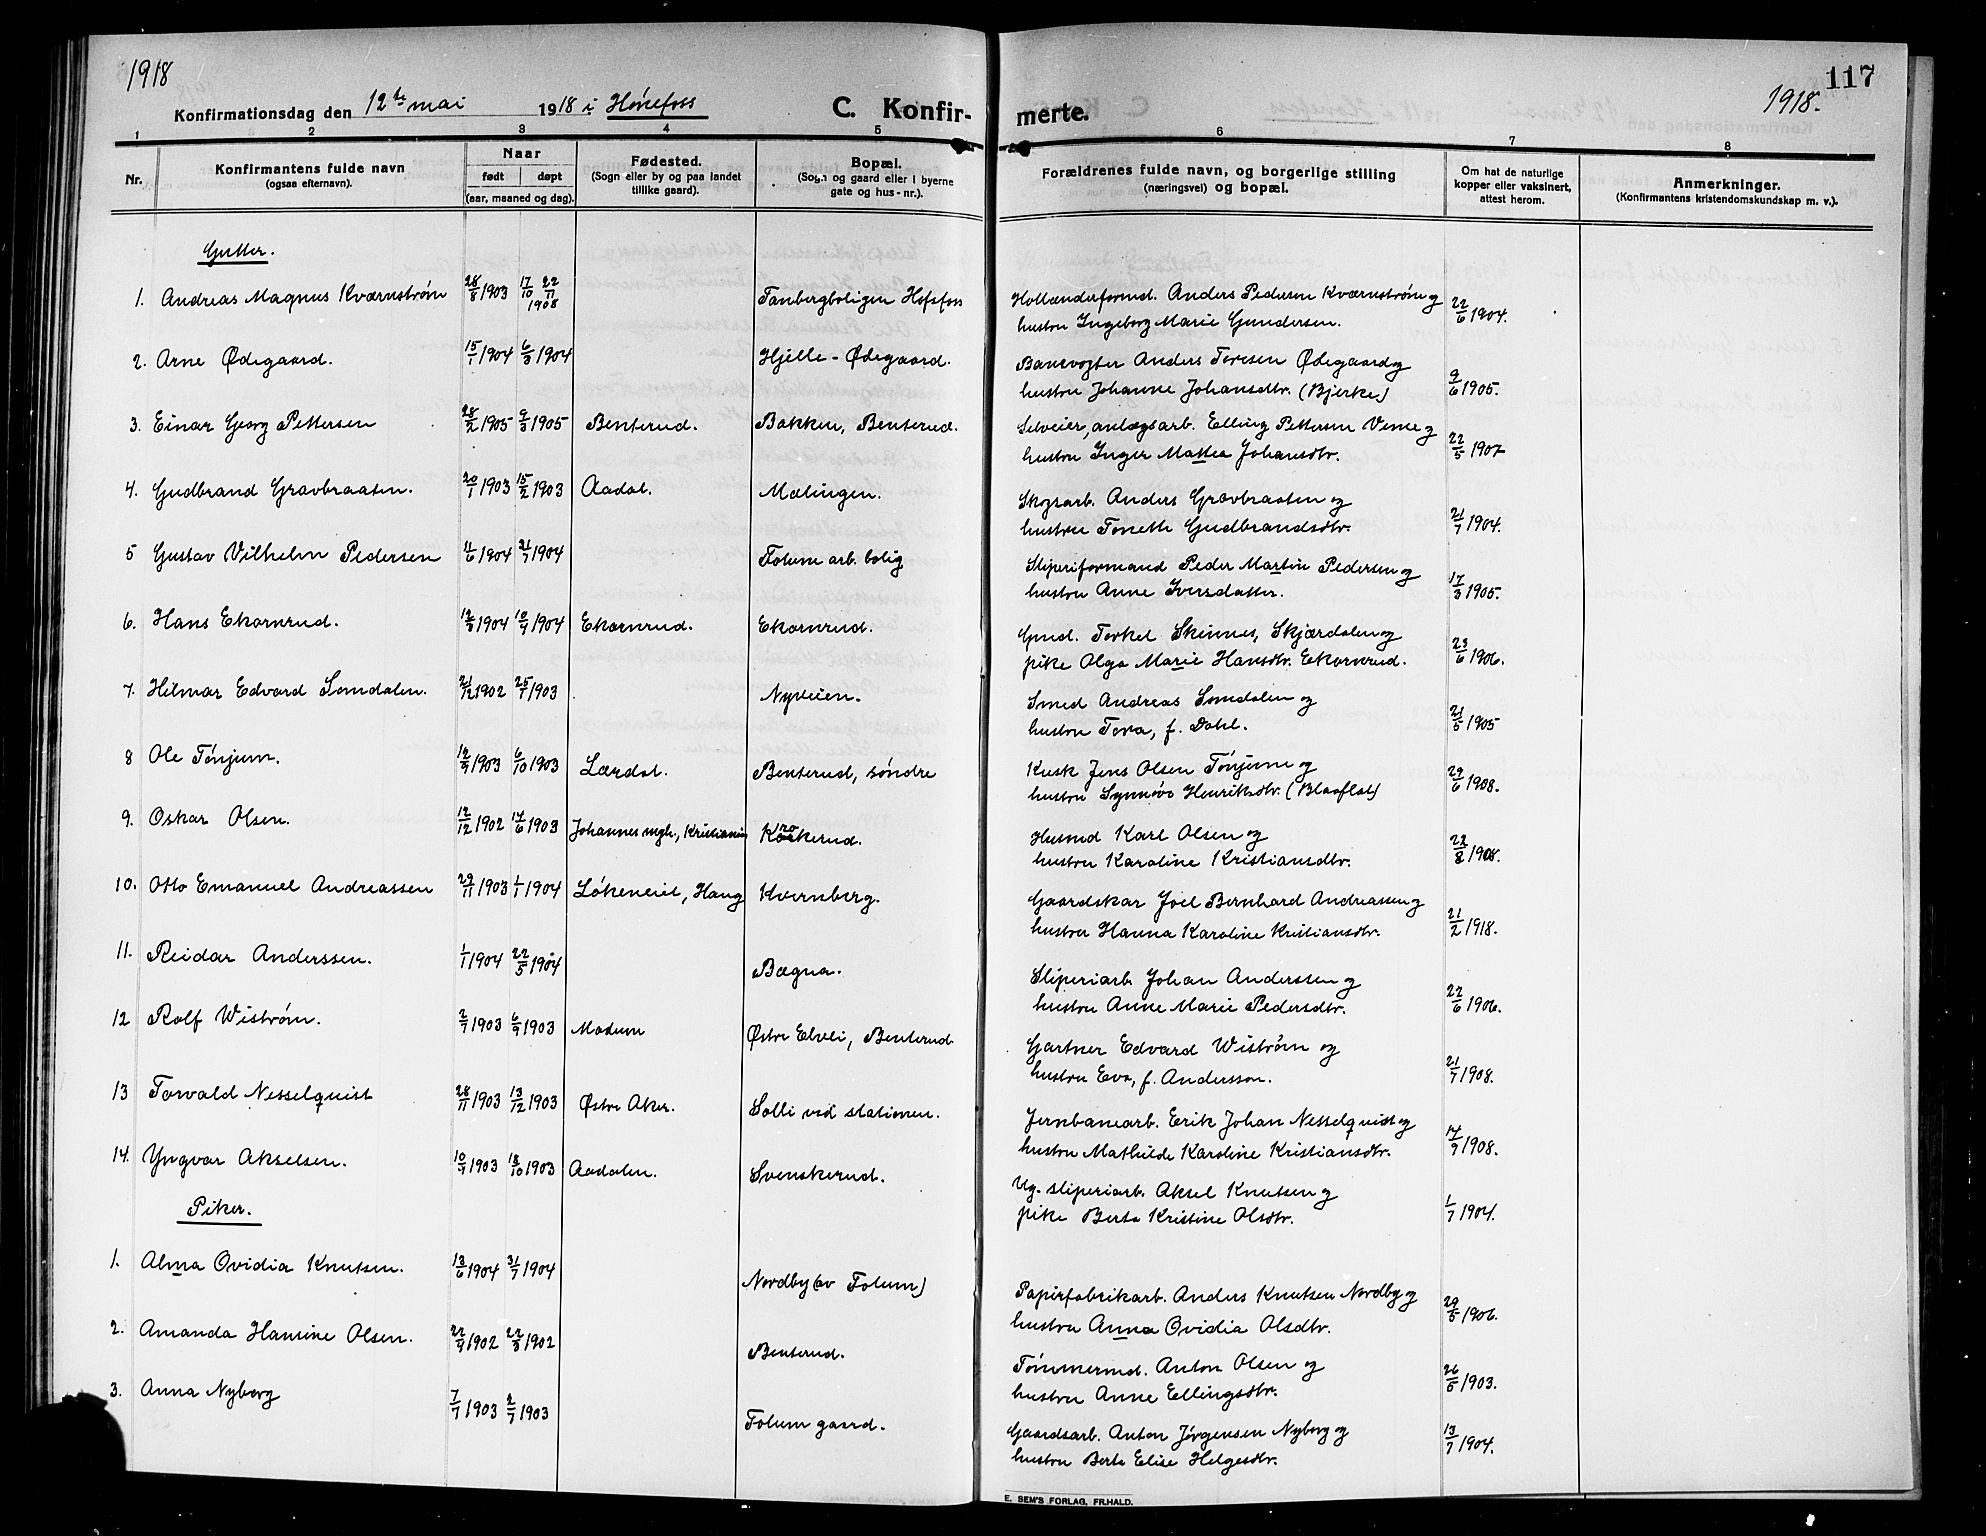 1918
Konfirmationsdag den 12te mai 1918 i Hönefoss
C. Konfir-
1 2 3 4 5
Nr.
Konfirmantens fulde navn
(ogsaa efternavn).
Naar
født døpt
(aar, maaned og dag).
Fødested.
(Sogn eller by og paa landet
tillike gaard).
Bopæl.
(Sogn og gaard eller i byerne
gate og hus-nr.).
Gutter.
1. Andreas Magnus Kværnström 28/8 1903 17/10 22/11 1908 Tanbergboligen Hofsfoss
2. Arne Ødegaard. 15/1 1904 6/3 1904 Hjelle - Ødegaard.
3. Einar Georg Pettersen 28/2 1905 9/3 1905 Benterud. Bakken, Benterud.
4. Gudbrand Gravbraaten. 20/1 1903 15/2 1903 Aadal. Mælingen.
5 Gustav Vilhelm Pedersen 4/6 1904 31/7 1904 Follum arb. bolig
6. Hans Ekornrud. 12/3 1904 10/4 1904 Ekornrud. Ekornrud.
7. Hilmar Edvard Somdalen. 21/12 1902 25/1 1903 Nyveien.
8 Ole Tönjum. 12/9 1903 6/10 1903 Lærdal. Benterud, söndre
9. Oskar Olsen. 12/12 1902 14/6 1903 Johannes mgh., Kristiania Korkerud.
10. Otto Emanuel Andreassen 29/11 1903 1/1 1904 Lökeneiet, Haug Kvernberg.
11. Reidar Anderssen. 1/1 1904 22/5 1904 Bægna.
12 Rolf Wiström. 2/7 1903 6/9 1903 Modum Østre Elvei, Benterud.
13 Torvald Nesselquist 28/11 1903 13/12 1903 Østre Aker. Solli ved stationen.
14. Yngvar Akselsen. 10/9 1903 18/10 1903 Aadalen. Svenskerud.
Piker.
1. Alma Ovidia Knutsen. 13/6 1904 31/7 1904 Nordby (av Follum)
2. Amanda Hansine Olsen. 22/4 1902 22/8 1902 Benterud.
3. Anna Nyberg 7/7 1903 2/7 1903 Follum gaard.
117
1918.
merte.
6 7 8
Forældrenes fulde navn, og borgerlige stilling
(næringsvei) og bopæl.
Om hat de naturlige
kopper eller vaksinert,
attest herom.
Anmerkninger.
(Konfirmantens kristendomskundskap m. v.).
Hollænderformd. Anders Pedersen Kværnström og
hustru Ingeborg Marie Gundersen. 22/6 1904.
Banevogter Anders Toresen Ødegaard og
hustru Johanne Johansdtr. (Bjerke) 9/6 1905.
Selveier, anlægsarb. Elling Pettersen Veme og
hustru Inger Mathea Johansdtr. 22/5 1907
Skogsarb. Anders Gravbraaten og
hustru Tonette Gudbrandsdtr. 21/7 1904.
Sliperiformand Peder Martin Pedersen og
hustru Anne Iversdatter. 17/3 1905.
Gmd. Torkel Skinnes, Skjærdalen og
pike Olga Marie Hansdtr. Ekornrud. 23/6 1906.
Smed Andreas Somdalen og
hustru Tora, f. Dahl. 21/5 1905
Kusk Jens Olsen Tönjum og
hustru Synnöve Henriksdtr. (Blaaflat) 29/6 1908.
Husmd Karl Olsen og
hustru Karoline Kristiansdtr. 22/8 1908.
Gaardskar Joel Bernhard Andreassen og
hustru Hanna Karoline Kristiansdtr. 21/2 1918.
Sliperiarb. Johan Anderssen og
hustru Anne Marie Pedersdtr. 22/6 1906.
Gartner Edvard Wiström og
hustru Eva, f. Andersson. 21/7 1908.
Jernbanearb. Erik Johan Nesselquist og
hustru Mathilde Karoline Kristiansdtr. 14/9 1908.
Ug. sliperiarb. Aksel Knutsen og
pike Berta Kristine Olsdtr. 1/7 1904.
Papirfabrikarb. Anders Knutsen Nordby og
hustru Anna Ovidia Olsdtr. 29/5 1906.
Tömmermd. Anton Olsen og
hustru Anne Ellingsdtr. 26/6 1903.
Gaardsarb. Anton Jörgensen Nyberg og
hustru Berte Elise Helgesdtr. 13/7 1904.
E. SEM'S FORLAG, FR.HALD.